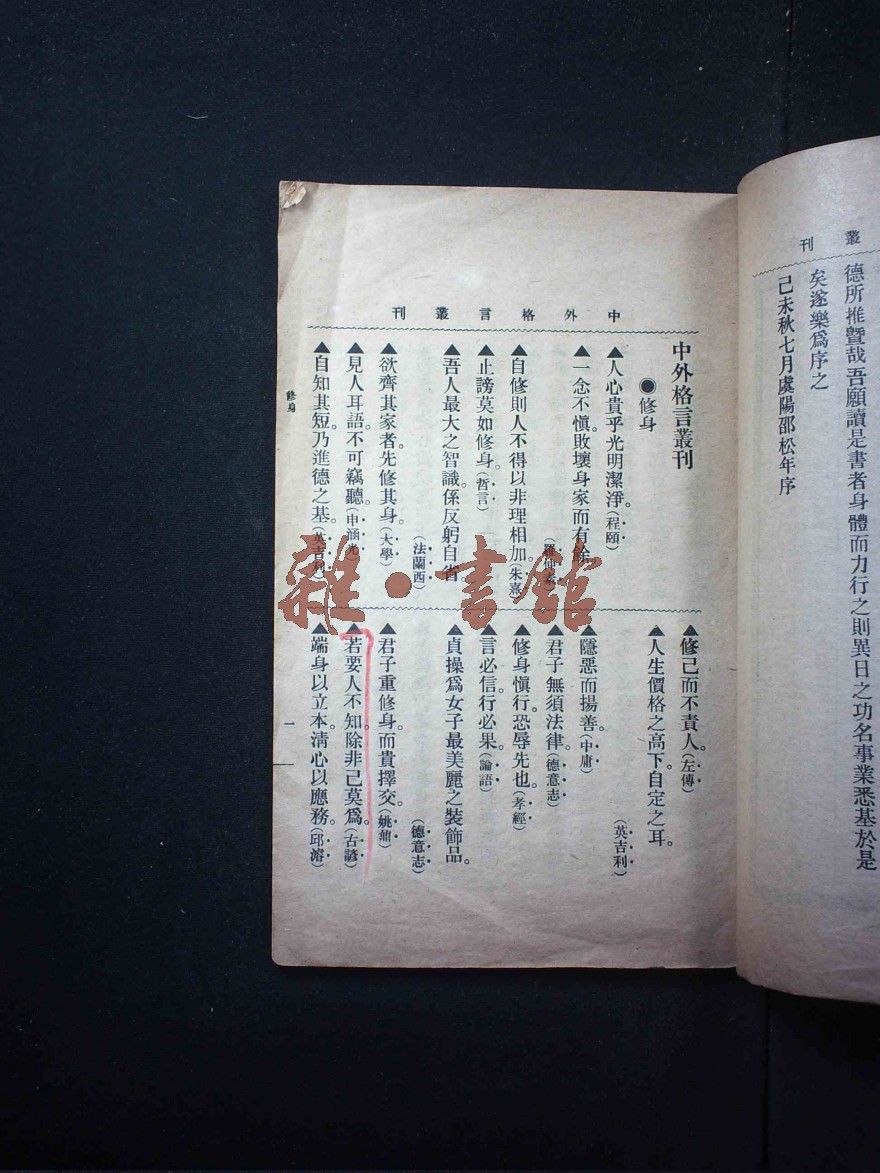 叢刊
德所推曁哉吾願讀是書者身體而力行之則異日之功名事業悉基於是
矣遂樂爲序之
己未秋七月虞陽邵松年序
中外格言叢刊
中外格言叢刊
●修身
▲人心貴乎光明潔淨。(程頤)
▲一念不愼。敗壞身家而有餘
▲自修則人不得以非理相加。(朱熹)
▲止謗莫如修身。(哲言)
▲吾人最大之智識。係反躬自省
(法蘭西)
▲欲齊其家者。先修其身。(大學)
▲見人耳語。不可竊聽。(申涵光)
▲自知其短。乃進德之基。(英吉利)
▲修己而不責人。(左傳)
▲人生價格之高下。自定之耳。
(英吉利)
▲隱惡而揚善。(中庸)
▲君子無須法律。(德意志)
▲修身愼行。恐辱先也。(孝經)
▲言必信。行必果。(論語)
▲貞操爲女子最美麗之裝飾品。
(德意志)
▲君子重修身。而貴擇交。(姚鼐)
▲若要人不知。除非己莫爲。(古諺)
▲端身以立本。淸心以應務。(邱濬)
修身
一
雜·書館